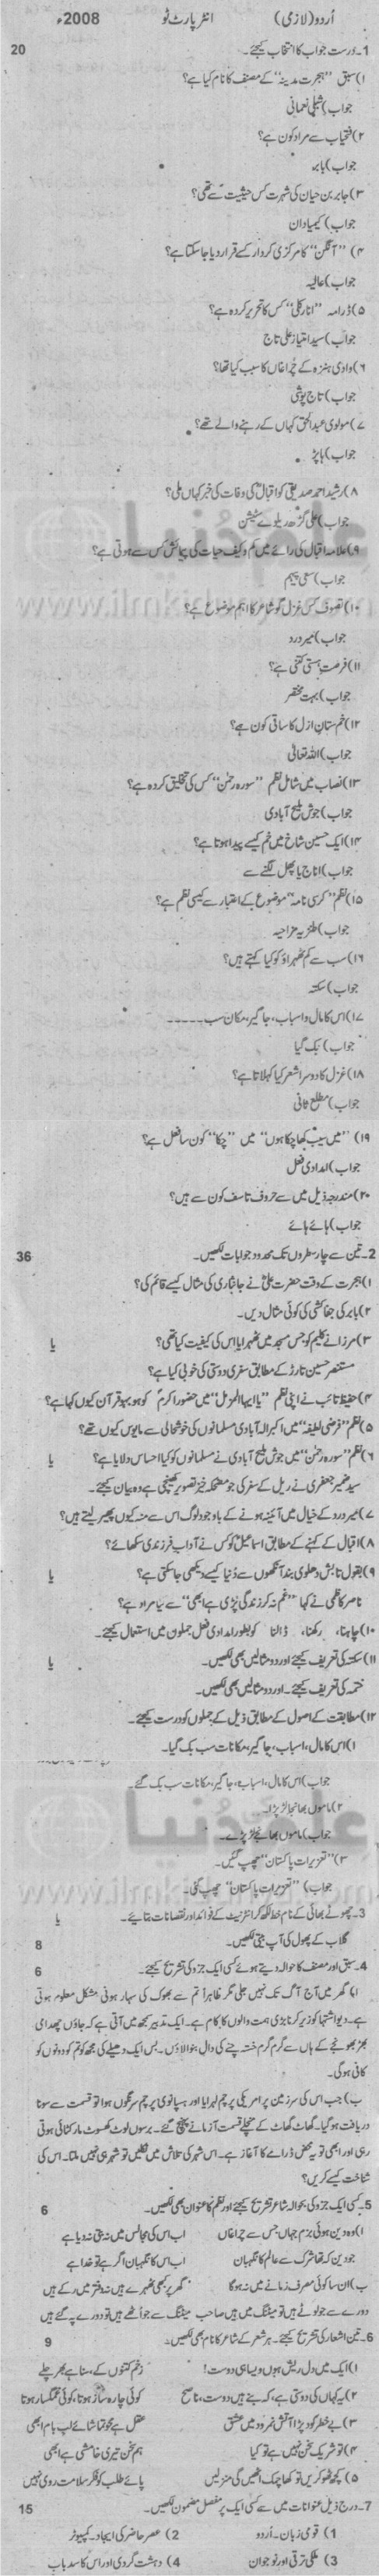 اُردو (لازمی) انٹر پارٹ ٹو 2008ء
1۔ درست جواب کا انتخاب کیجئے۔ 20
۱) سبق ”ہجرت مدینہ“ کے مصنف کا نام کیا ہے؟
جواب) شبلی نعمانی
۲) فتحیاب سے مراد کون ہے؟
جواب) بابر
۳) جابر بن حیان کی شہرت کس حیثیت سے تھی؟
جواب) کیمیادان
۴) ”آنگن“ کا مرکزی کردار کسے قرار دیا جا سکتا ہے؟
جواب) عالیہ
۵) ڈرامہ ”انارکلی“ کس کا تحریر کردہ ہے؟
جواب) سید امتیاز علی تاج
۶) وادی ہنزہ کے چراغاں کا سبب کیا تھا؟
جواب) تاج پوشی
۷) مولوی عبدالحق کہاں کے رہنے والے تھے؟
جواب) ہاپڑ
۸) رشید احمد صدیقی کو اقبالؒ کی وفات کی خبر کہاں ملی؟
جواب) علی گڑھ ریلوے سٹیشن
۹) علامہ اقبال کی رائے میں کم و کیف حیات کی پیمائش کس سے ہوتی ہے؟
جواب) سعی پیہم
۱۰) تصوف کس غزل گو شاعر کا اہم موضوع ہے؟
جواب) میر درد
۱۱) فرصت ہستی کتنی ہے؟
جواب) بہت مختصر
۱۲) خمستانِ ازل کا ساقی کون ہے؟
جواب) اللہ تعالیٰ
۱۳) نصاب میں شامل نظم ”سورہ رحمٰن“ کس کی تخلیق کردہ ہے؟
جواب) جوش ملیح آبادی
۱۴) ایک حسین شاخ میں خم کیسے پیدا ہوتا ہے؟
جواب) اناج یا پھل لگنے سے
۱۵) نظم ”کرسی نامہ“ موضوع کے اعتبار سے کیسی نظم ہے؟
جواب) طنزیہ مزاحیہ
۱۶) سب سے کم ٹھہراؤ کو کیا کہتے ہیں؟
جواب) سکتہ
۱۷) اس کا مال و اسباب، جاگیر، مکان سب ------
جواب) بک گیا
۱۸) غزل کا دوسرا شعر کیا کہلاتا ہے؟
جواب) مطلع ثانی
۱۹) ”میں سیب کھا چکا ہوں“ میں ”چکا“ کون سا فعل ہے؟
جواب) امدادی فعل
۲۰) مندرجہ ذیل میں سے حروف تاسف کون سے ہیں؟
جواب) ہائے ہائے
2۔ تین سے چار سطروں تک محدود جوابات لکھیں۔ 36
۱) ہجرت کے وقت حضرت علیؓ نے جانثاری کی مثال کیسے قائم کی؟
۲) بابر کی جفاکشی کی کوئی مثال دیں۔
۳) مرزا نے کلیم کو جس مسجد میں ٹھہرایا اس کی کیفیت کیا تھی؟ یا
مستنصر حسین تارڑ کے مطابق سفری دوستی کی خوبی کیا ہے؟
۴) حفیظ تائب نے اپنی نظم ”یا ایہا المزمل“ میں حضور اکرمؐ کو ہو بہو قرآن کیوں کہا ہے؟
۵) نظم ”فرضی لطیفہ“ میں اکبر الہ آبادی مسلمانوں کی خوشحالی سے مایوس کیوں تھے؟
۶) نظم ”سورہ رحمٰن“ میں جوش ملیح آبادی نے مسلمانوں کو کیا احساس دلایا ہے؟ یا
سید ضمیر جعفری نے ریل کے سفر کی جو مضحکہ خیز تصویر کھینچی ہے وہ بیان کیجئے۔
۷) میر درد کے خیال میں آئینہ ہونے کے باوجود لوگ اس سے منہ کیوں پھیر لیتے ہیں؟
۸) اقبال کے کہنے کے مطابق اسماعیلؑ کو کس نے آداب فرزندی سکھائے؟
۹) بقول تابش دھلوی بند آنکھوں سے دُنیا کیسے دیکھی جا سکتی ہے؟ یا
ناصر کاظمی نے کہا ”غم نہ کر زندگی پڑی ہے ابھی“ سے کیا مراد ہے؟
۱۰) چاہنا، رکھنا، ڈالنا کو بطور امدادی فعل جملوں میں استعمال کیجئے۔
۱۱) سکتہ کی تعریف کیجئے اور دو مثالیں بھی لکھیں۔ یا
ختمہ کی تعریف کیجئے۔ اور دو مثالیں بھی لکھیں۔
۱۲) مطابقت کے اصول کے مطابق ذیل کے جملوں کو درست کیجئے۔
۱) اس کا مال، اسباب، جاگیر، مکانات سب بک گیا۔
جواب) اس کا مال، اسباب، جاگیر، مکانات سب بک گئے۔
۲) ماموں بھانجا لڑ پڑا۔
جواب) ماموں بھانجے لڑ پڑے۔
۳) ”تعزیرات پاکستان“ چھپ گئیں۔
جواب) ”تعزیرات پاکستان“ چھپ گئی۔
3۔ چھوٹے بھائی کے نام خط لکھ کر انٹرنیٹ کے فوائد اور نقصانات بتائیے۔ یا
گلاب کے پھول کی آپ بیتی لکھیں۔ 8
4۔ سبق اور مصنف کا حوالہ دیتے ہوئے کسی ایک جزو کی تشریح کیجئے۔ 6
۱) گھر میں آج آگ تک نہیں جلی مگر ظاہراً تم سے بھوک کی سہار ہونی مشکل معلوم ہوتی
ہے۔ دیو اشتہا کو زیر کرنا بڑی ہمت والوں کا کام ہے۔ ایک تدبیر سمجھ میں آتی ہے کہ جاؤں چھدامی
بھڑ بھونجے کے ہاں سے گرم گرم خستہ چنے کی دال بنوا لاؤں۔ بس ایک دھیلے کی مجھ کو تم کو دونوں کو
کافی ہوگی۔
ب) جب اس کی سرزمین پر امریکی پرچم لہرایا اور ہسپانوی پرچم سرنگوں ہوا تو قسمت سے سونا
دریافت ہو گیا۔ گھاٹ گھاٹ کے منچلے قسمت آزمانے پہنچ گئے۔ برسوں لوٹ کھسوٹ مار کٹائی ہوتی
رہی اور ابھی تو یہ محض ڈرامے کا آغاز ہے۔ اس شہر کی تلاش میں نکلیں تو شہر ہی نہیں ملتا۔ اس کی
شناخت کیسے کریں؟
5۔ کسی ایک جزو کی بحوالہ شاعر تشریح کیجئے اور نظم کا عنوان بھی لکھیں۔ 6
۱) وہ دین ہوئی بزم جہاں جس سے چراغاں اب اس کی مجالس میں نہ بتی نہ دیا ہے
جو دین کہ تھا شرک سے عالم کا نگہبان اب اس کا نگہبان اگر ہے تو خدا ہے
ب) ان سا کوئی مصرف زمانے میں نہ ہوگا گھر پر کبھی ٹھہرے ہیں نہ دفتر میں رکے ہیں
دورے سے جو لوٹے ہیں تو میٹنگ میں ہیں صاحب میٹنگ سے جو اٹھے ہیں تو دورے پہ گئے ہیں
6۔ تین اشعار کی تشریح کیجئے۔ ہر شعر کے شاعر کا نام بھی لکھیں۔ 9
۱) ایک میں دل ریش ہوں ویسا ہی دوست! زخم کتنوں کے سنا ہے بھر چلے
۲) یہ کہاں کی دوستی ہے، کہ بنے ہیں دوست، ناصح کوئی چارہ ساز ہوتا، کوئی غمگسار ہوتا
۳) بے خطر کود پڑا آتش نمرود میں عشق عقل ہے محو تماشائے لب بام ابھی
۴) تو شریک سخن نہیں ہے تو کیا ہم سخن تیری خامشی ہے ابھی
۵) کچھ ٹھوکریں تو کھا چک اٹھیں گی منزلیں پائے طلب کو فکر سلامت روی نہیں
7۔ درج ذیل عنوانات میں سے کسی ایک پر مفصل مضمون لکھیں۔ 15
1) قومی زبان۔ اُردو 2) عصر حاضر کی ایجاد۔ کمپیوٹر
3) ملکی ترقی اور نوجوان 4) دہشت گردی اور اس کا سدباب